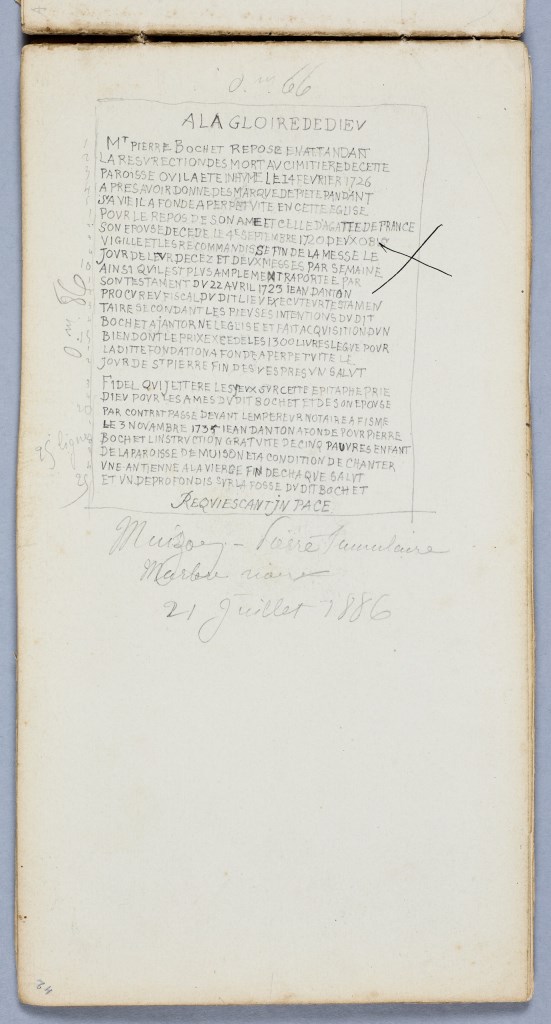 0 m 66
A LA GLOIRE DE DIEV
Mt PIERRE BOCHET REPOSE EN ATTANDANT
LA RESVRECTION DES MORT AV CIMITIERE DE CETTE
PAROISSE OV IL A ETE INHVME LE 14 FEVRIER 1726
APRES AVOIR DONNE DES MARQVE DE PIETE PANDANT
SA VIE IL A FONDE A PERPETVITE EN CETTE EGLISE
POVR LE REPOS DE SON AME ET CELLE D'AGATTE DE FRANCE
SON EPOVSE DECEDE LE 4e SEPTEMBRE 1720 DEVX OBIS
VIGILLE ET LES RECOMMANDISSE FIN DE LA MESSE LE
JOVR DE LEVR DECEZ ET DEVX MESSES PAR SEMAINE
AINSI QVIL EST PLVS AMPLEMENT RAPORTEE PAR
SON TESTAMENT DV 22 AVRIL 1723 IEAN DANTON
PROCVREV FISCAL DV DIT LIEV EXECVTEVR TESTAMEN
TAIRE SECONDANT LES PIEVSES INTENTIONS DV DIT
BOCHET A JANTORNE LEGLISE ET FAIT ACQVISITION DVN
BIEN DONT LE PRIX EXCEDE LES 1300 LIVRES LEGVE POVR
LADITTE FONDATION A FONDE A PERPETVITE LE
JOVR DE ST PIERRE FIN DES VESPRES VN SALVT
FIDEL QVI JETTERE LES YEVX SVR CETTE EPITAPHE PRIE
DIEV POVR LES AMES DV DIT BOCHET ET DE SON EPOVSE
PAR CONTRAT PASSE DEVANT LEMPEREVR NOTAIRE A FISME
LE 3 NOVEMBRE 1735 IEAN DANTON A FONDE POVR PIERRE
BOCHET LINSTRVCTION GRATVITE DE CINQ PAVVRES ENFANT
DE LA PAROISSE DE MVISON ET A CONDITION DE CHANTER
VNE ANTIENNE A LA VIERGE FIN DE CHAQVE SALVT
ET VN DE PROFONDIS SVR LA FOSSE DV DIT BOCHET
REQVIESCANT JN PACE
0 m 86
25 lignes
Muizon - Pierre Tumulaire
Marbre noire
21 Juillet 1886